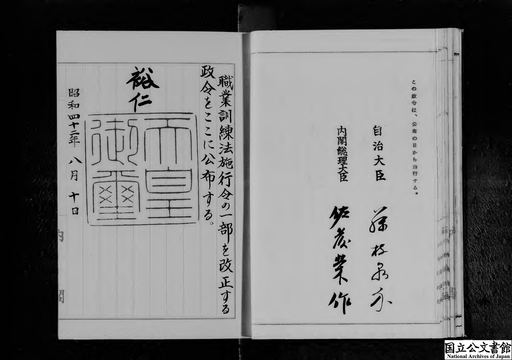 この政令は、公布の日から施行する。
自治大臣 藤枝泉介
内閣総理大臣 佐藤榮作
職業訓練法施行令の一部を改正する
政令をここに公布する。
裕仁
天皇御璽
昭和四十二年八月十日
内閣
国立公文書館
National Archives of Japan